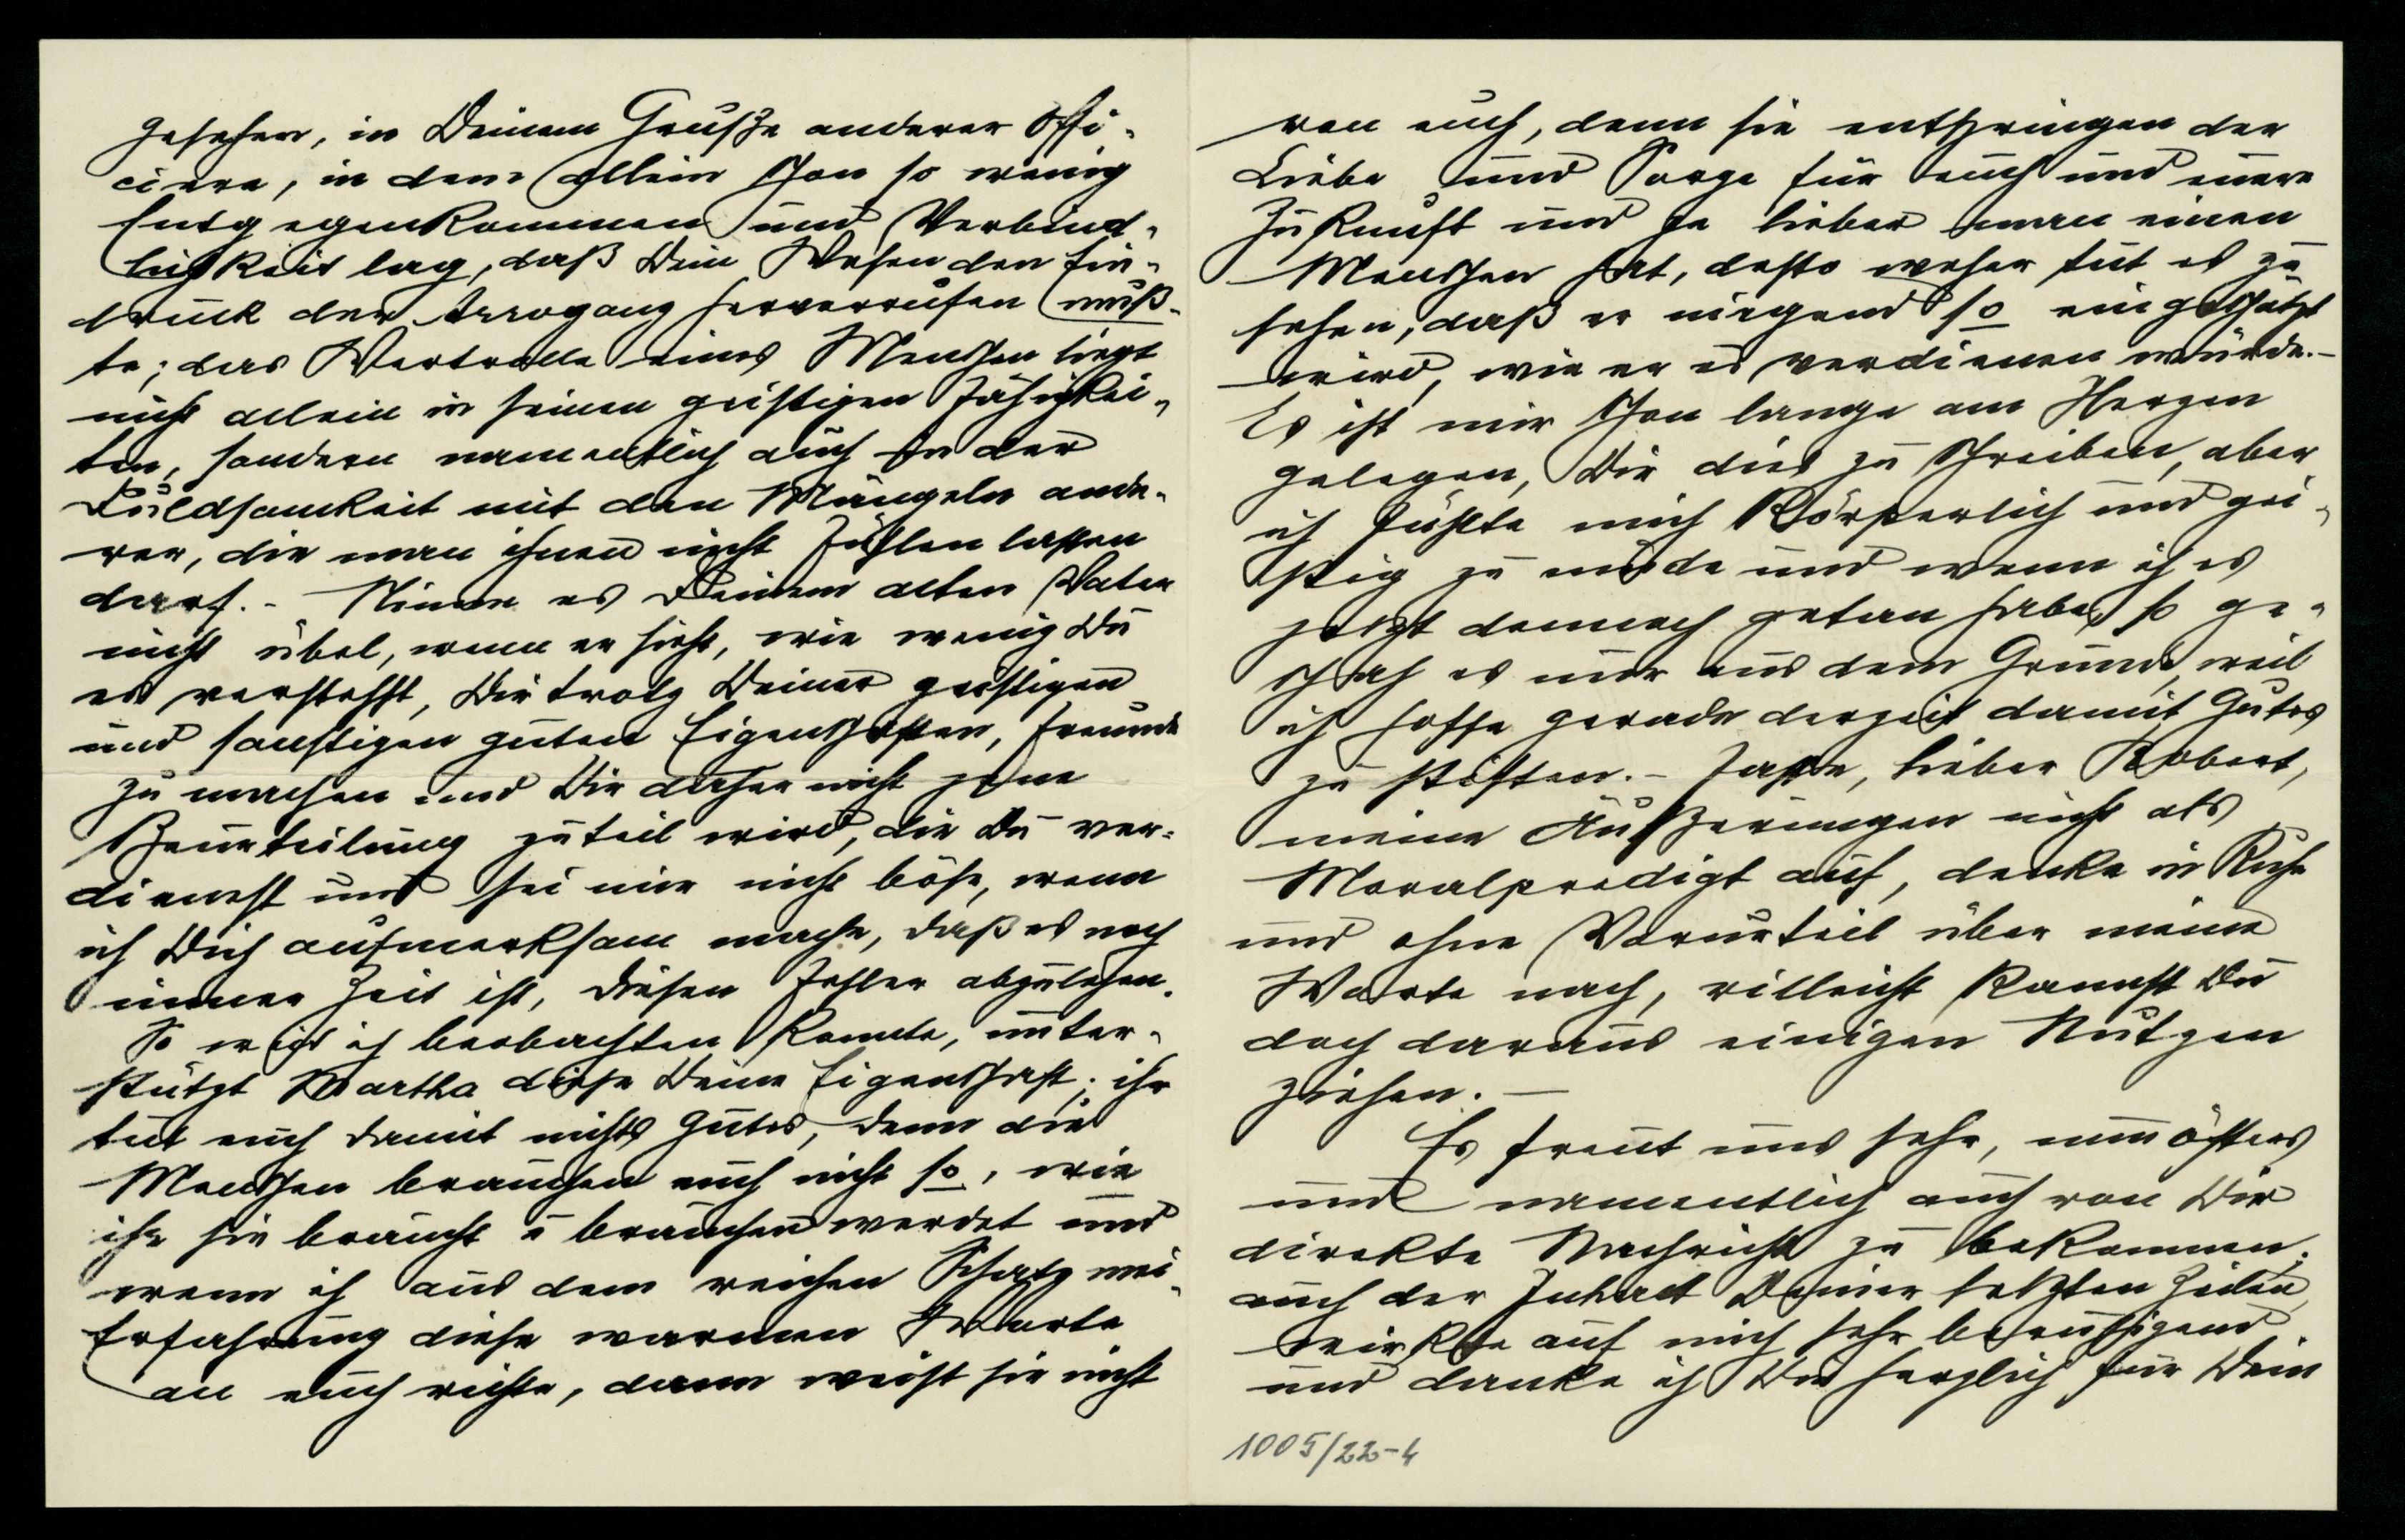 gesehen, in Deinem Gruße anderer Offi-
ciere, in dem allein schon so wenig
Entgegenkommen und Verbind-
lichkeit lag, daß Dein Wesen den Ein-
druck der Arroganz hervorrufen muß-
te; das Wertvolle eines Menschen liegt
nicht allein in seinen geistigen Fähigkei-
ten, sondern namentlich auch in der
Duldsamkeit mit den Mängeln ande-
rer, die man ihnen nicht fühlen lassen
darf. - Nimm es Deinem alten Vater
nicht übel, wenn er sieht, wie wenig Du
es verstehst, Dir trotz Deiner geistigen
und sonstigen guten Eigenschaften, Freunde
zu machen und Dir daher nicht jene
Beurteilung zuteil wird, die Du ver-
dienest und sei mir nicht böse, wenn
ich Dich aufmerksam mache, daß es noch
immer Zeit ist, diesen Fehler abzulegen.
So weit ich beobachten konnte, unter-
stützt Martha diese Deine Eigenschaft; ihr
tut euch damit nichts Gutes, denn die
Menschen brauchen euch nicht so, wie
ihr sie braucht u brauchen werdet und
wenn ich aus dem reichen Schatz mei-
Erfahrung diese warmen Worte
an euch richte, dann weist sie nicht
von euch, denn sie entspringen der
Liebe und Sorge für euch und euere
Zukunft und je lieber man einen
Menschen hat, desto weher tut es zu
sehen, daß er nirgend so eingeschätzt
wird, wie er es verdienen würde. -
Es ist mir schon lange am Herzen
gelegen, Dir dies zu schreiben, aber
ich fühlte mich körperlich und gei-
stig zu müde und wenn ich es
jetzt dennoch getan habe, so ge-
schah es nur aus dem Grund, weil
ich hoffe gerade derzeit damit Gutes
zu stiften. - Fasse, lieber Robert,
meine Äußerungen nicht als
Moralpredigt auf, denke in Ruhe
und ohne Vorurteil über meine
Worte nach, villeicht kannst Du
doch daraus einigen Nutzen
ziehen. -
Es freut uns sehr, nun öfters
und namentlich auch von Dir
direkte Nachricht zu bekommen;
auch der Inhalt Deiner letzten Zeilen
wirkte auf mich sehr beruhigend
und danke ich Dir herzlich für Dein
1005/22-4